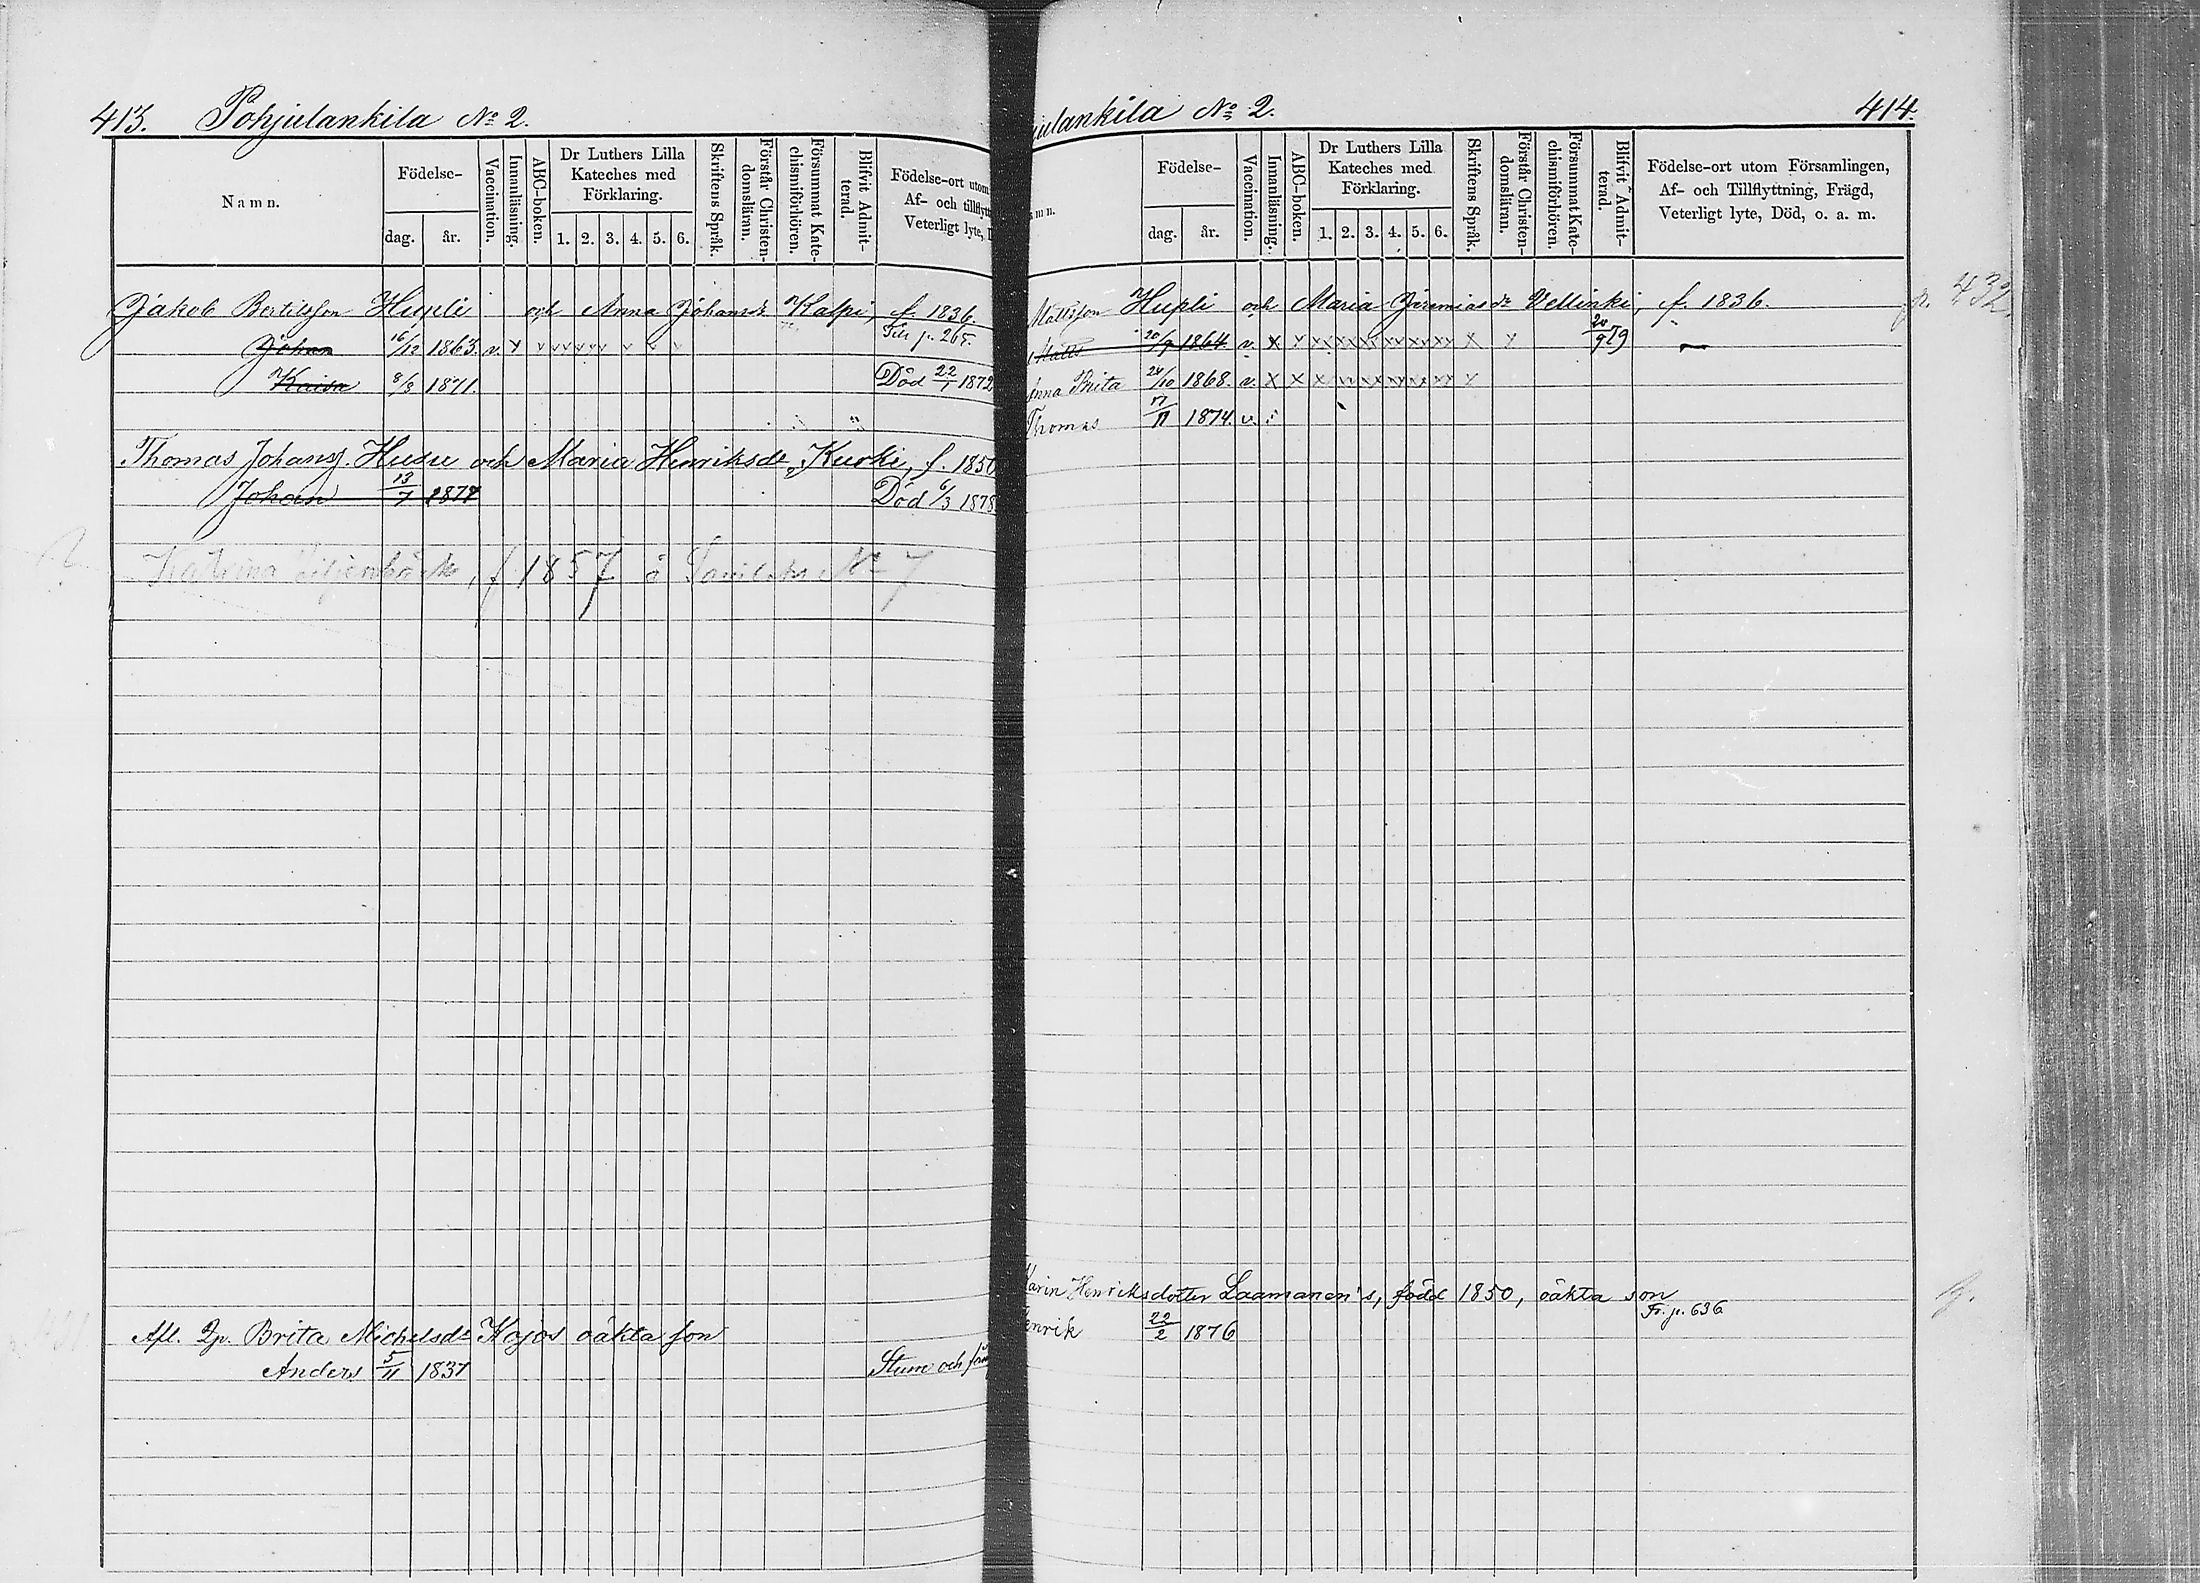 413. Pohjulankila No 2.
Namn.
Födelse-
dag.
år.
Vaccination.
Innanläsning.
ABC-boken.
Dr Luthers Lilla
Kateches med
Förklaring.
1. 2. 3. 4. 5. 6.
Skriftens Språk.
Förstår Christen-
domsläran.
Försummat Kate-
chismiförhören.
Blifvit Admit-
terad.
Födelse-ort utom
Af- och tillflytt
Veterligt lyte, D
Jakob Bertilsson Hupli och Anna Johansdr Kalpi, f. 1836.
Johan 16/12 1863. v. x v v v v v v v v Till p. 265.
Kaisa 8/3 1871. Död 22/1 1872
Thomas Johanss. Husu och Maria Henriksdr Kurki, f. 1850
Johan 13/7 1877 Död 6/3 1878
Katrina f 1857 å No 7
Afl. Brita Michelsdr Kojos oäkta son
Anders 5/11 1837 Stum och
julankila No 2. 414.
mn.
Födelse-
dag.
år.
Vaccination.
Innanläsning.
ABC-boken.
Dr Luthers Lilla
Kateches med
Förklaring.
1. 2. 3. 4. 5. 6.
Skriftens Språk.
Förstår Christen-
domsläran.
Försummat Kate-
chismiförhören.
Blifvit Admit-
terad.
Födelse-ort utom Församlingen,
Af- och Tillflyttning, Frägd,
Veterligt lyte, Död, o. a. m.
Mattsson Hupli och Maria Jeremiasdr Vellinki, f. 1836. p. 432.
Matts 20/9 1864. v. x x x x x x x x x x x 20/9 79
Anna Brita 24/10 1868. v. x x x x x x x x x x
Thomas 17/11 1874. v.
Karin Henriksdotter Laamanen's, född 1850, oäkta son
Fr. p. 636
enrik 22/2 1876